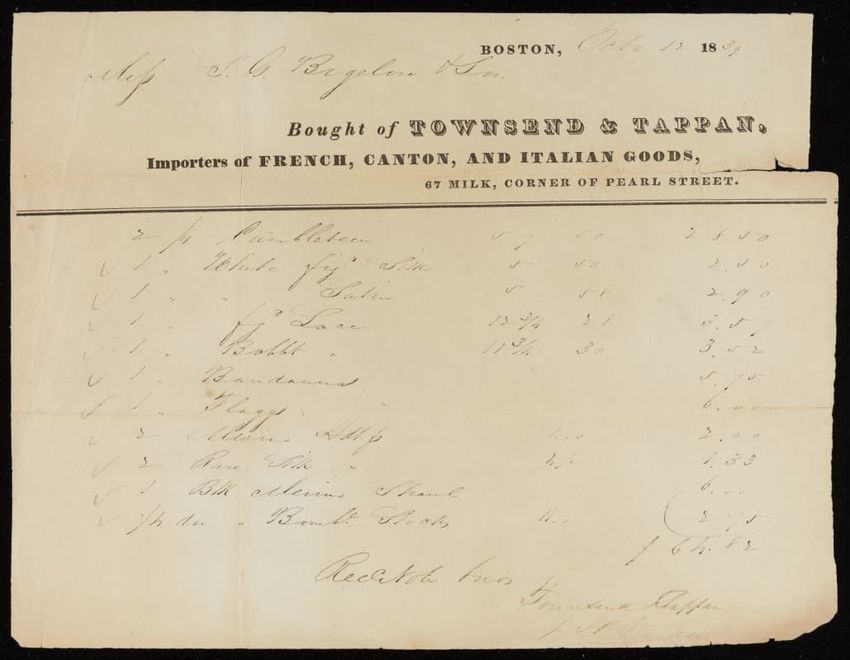 BOSTON, Octo 12 1839
Mess S. G. Bigelow & Son
Bought of TOWNSEND & TAPPAN,
Importers of FRENCH, CANTON, AND ITALIAN GOODS,
67 MILK, CORNER OF PEARL STREET.
2 ps 57 50 28.50
✓ 1 " White fig'd Silk 5 50 2.50
✓ 1 " " Satin 5 58 2.90
✓ 1 " fig'd Lace 12 3/4 28 3.57
✓ 1 " Bobbt " 11 3/4 30 3.52
✓ 1 " Bandannas 5.75
✓ 1 " Flaggs " 6.00
✓ 2 Merino Hdkfs 1.00 2.00
✓ 2 Raw Silk " 1.33
✓ 1 Blk Merino Shawl 6.00
✓ " Stocks 2.75
$ 64.82
Rec'd Note 6 mos
Townsend & Tappan